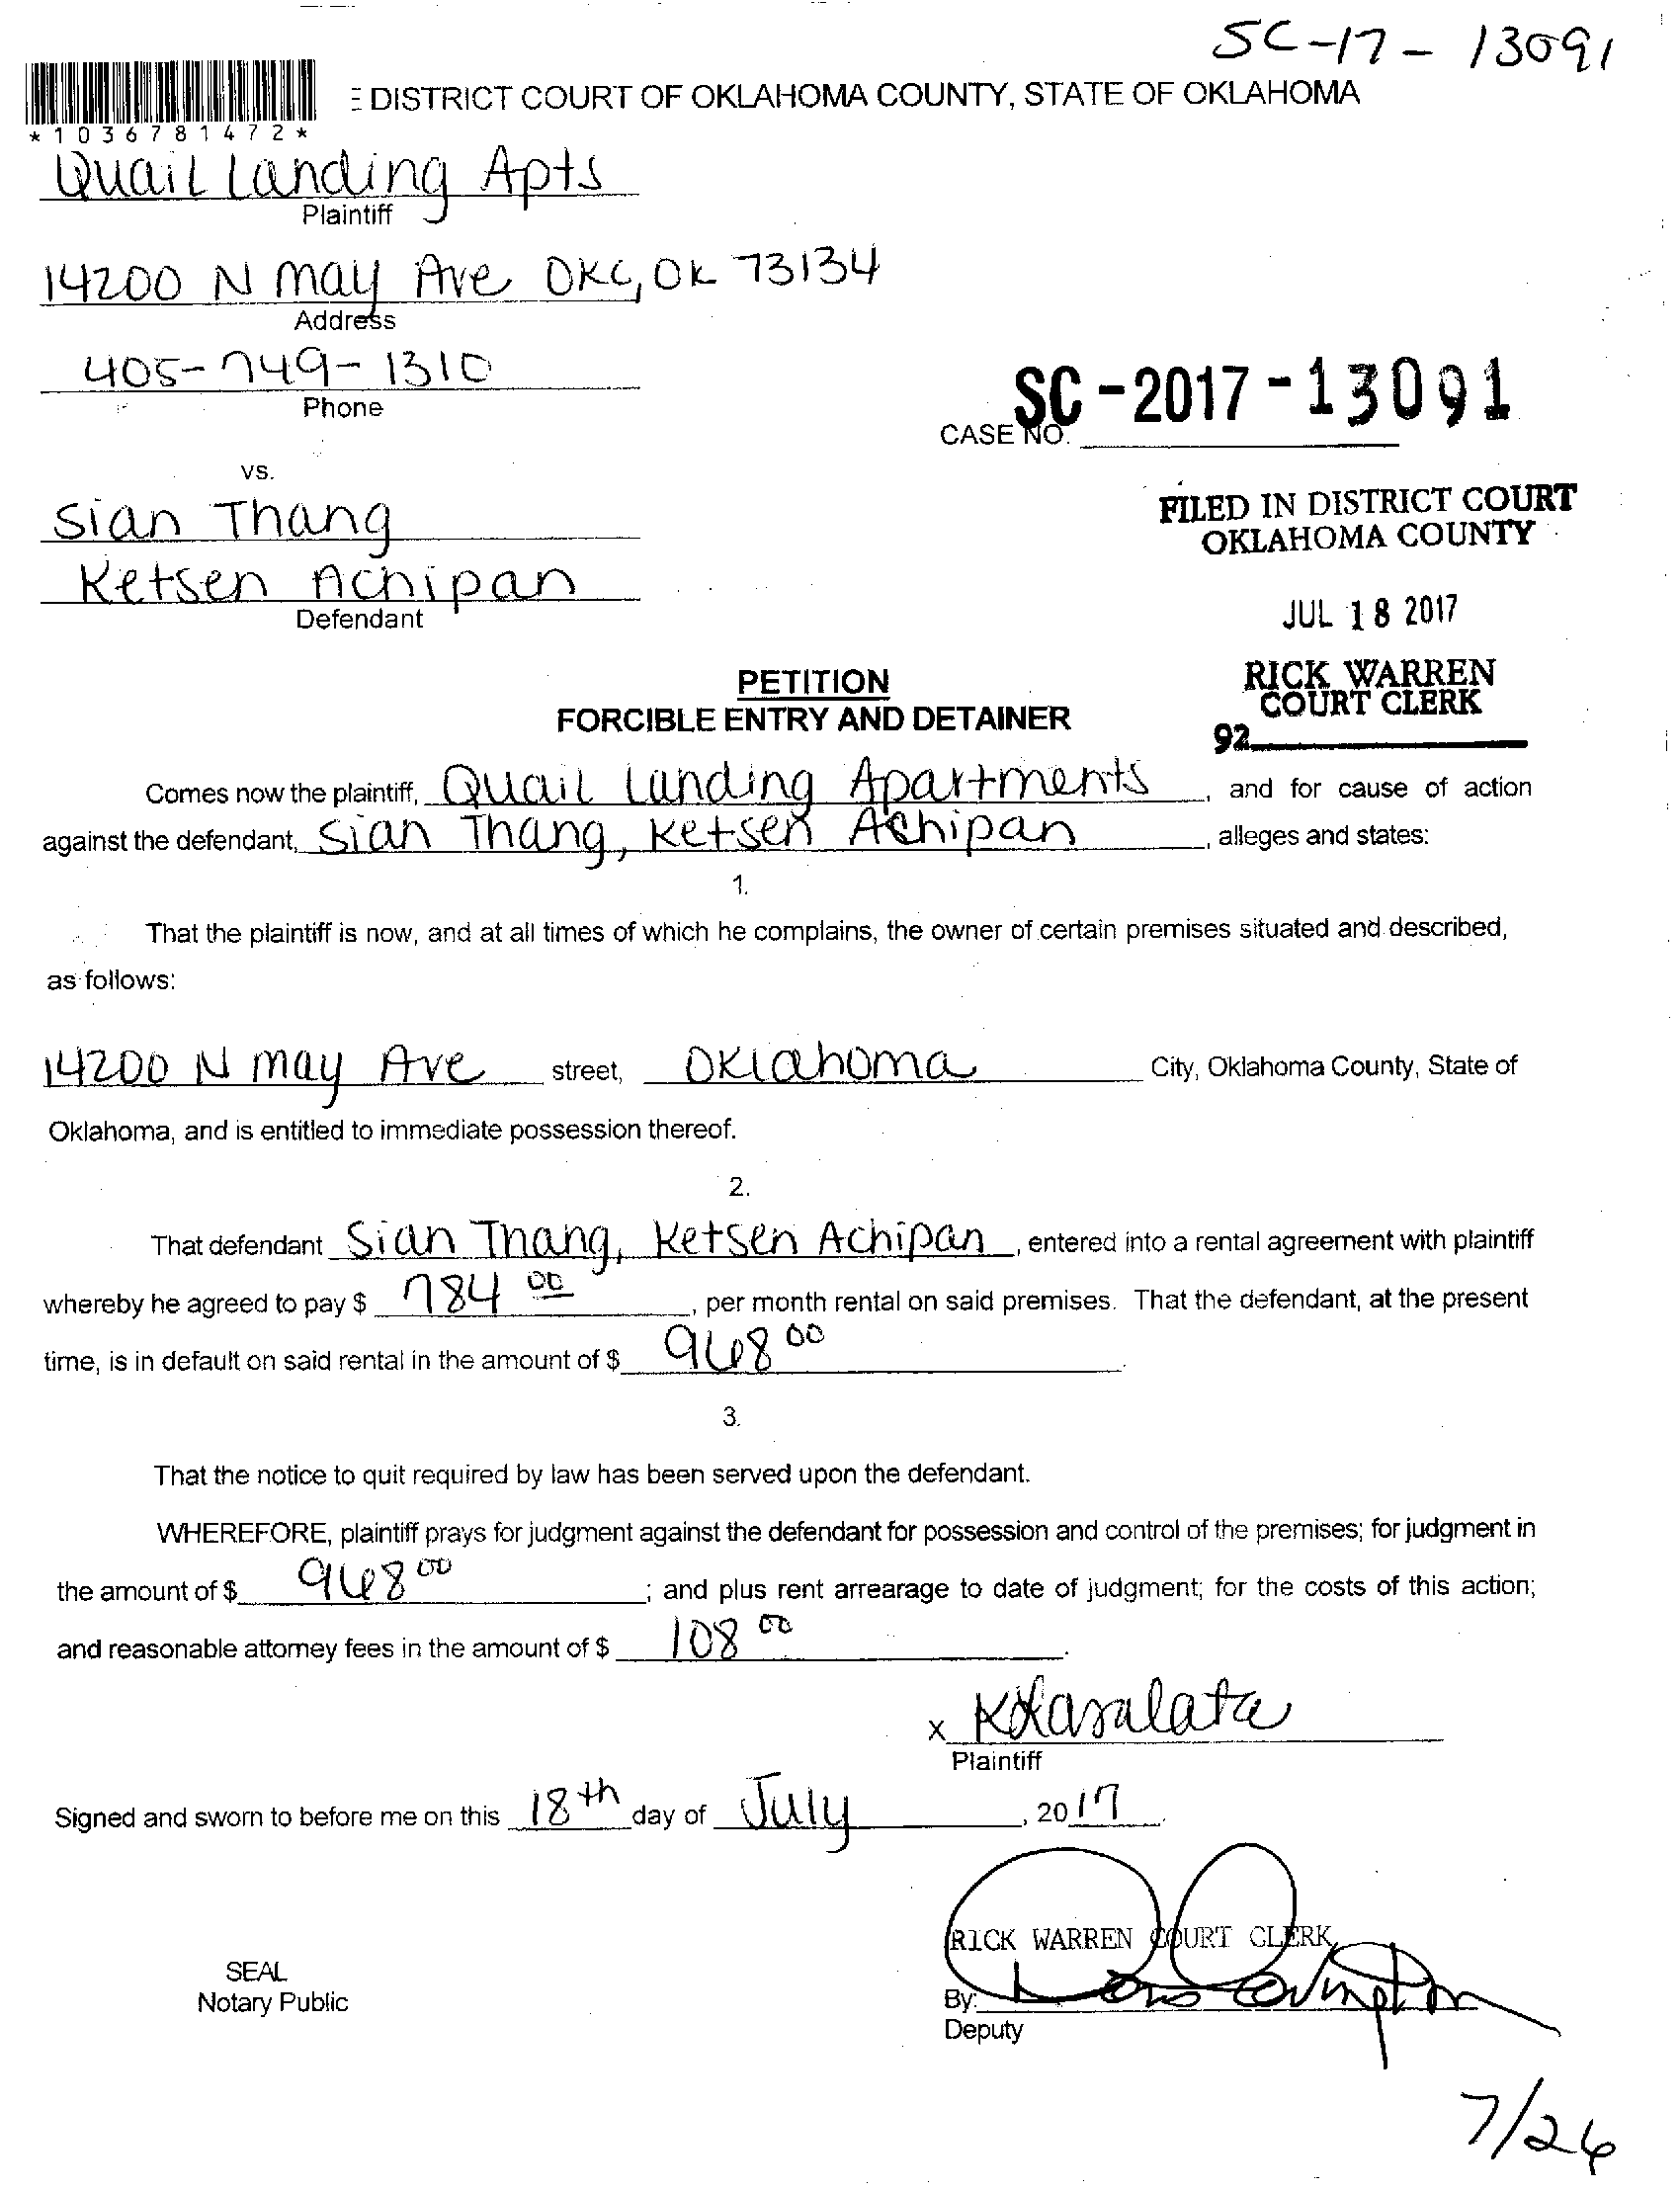 SC-17-13091
E DISTRICT COURT OF OKLAHOMA COUNTY, STATE OF OKLAHOMA
*1036781472*
Quail Landing Apts
Plaintiff
14200 N May Ave OKC, OK 73134
Address
405-749-1310
Phone
SC-2017-13091
CASE NO.
vs.
Sian Thang
Ketsen Achipan
Defendant
FILED IN DISTRICT COURT
OKLAHOMA COUNTY
JUL 18 2017
RICK WARREN
COURT CLERK
92
PETITION
FORCIBLE ENTRY AND DETAINER
Comes now the plaintiff, Quail Landing Apartments, and for cause of action
against the defendant, Sian Thang, Ketsen Achipan, alleges and states:
1.
That the plaintiff is now, and at all times of which he complains, the owner of certain premises situated and described,
as follows:
14200 N May Ave street, Oklahoma City, Oklahoma County, State of
Oklahoma, and is entitled to immediate possession thereof.
2.
That defendant Sian Thang, Ketsen Achipan, entered into a rental agreement with plaintiff
whereby he agreed to pay $ 784 00, per month rental on said premises. That the defendant, at the present
time, is in default on said rental in the amount of $ 968 00.
3.
That the notice to quit required by law has been served upon the defendant.
WHEREFORE, plaintiff prays for judgment against the defendant for possession and control of the premises; for judgment in
the amount of $ 968 00; and plus rent arrearage to date of judgment; for the costs of this action;
and reasonable attorney fees in the amount of $ 108 00.
x
Plaintiff
Signed and sworn to before me on this 18th day of July, 2017.
RICK WARREN COURT CLERK
SEAL
Notary Public
By:
Deputy
7/26